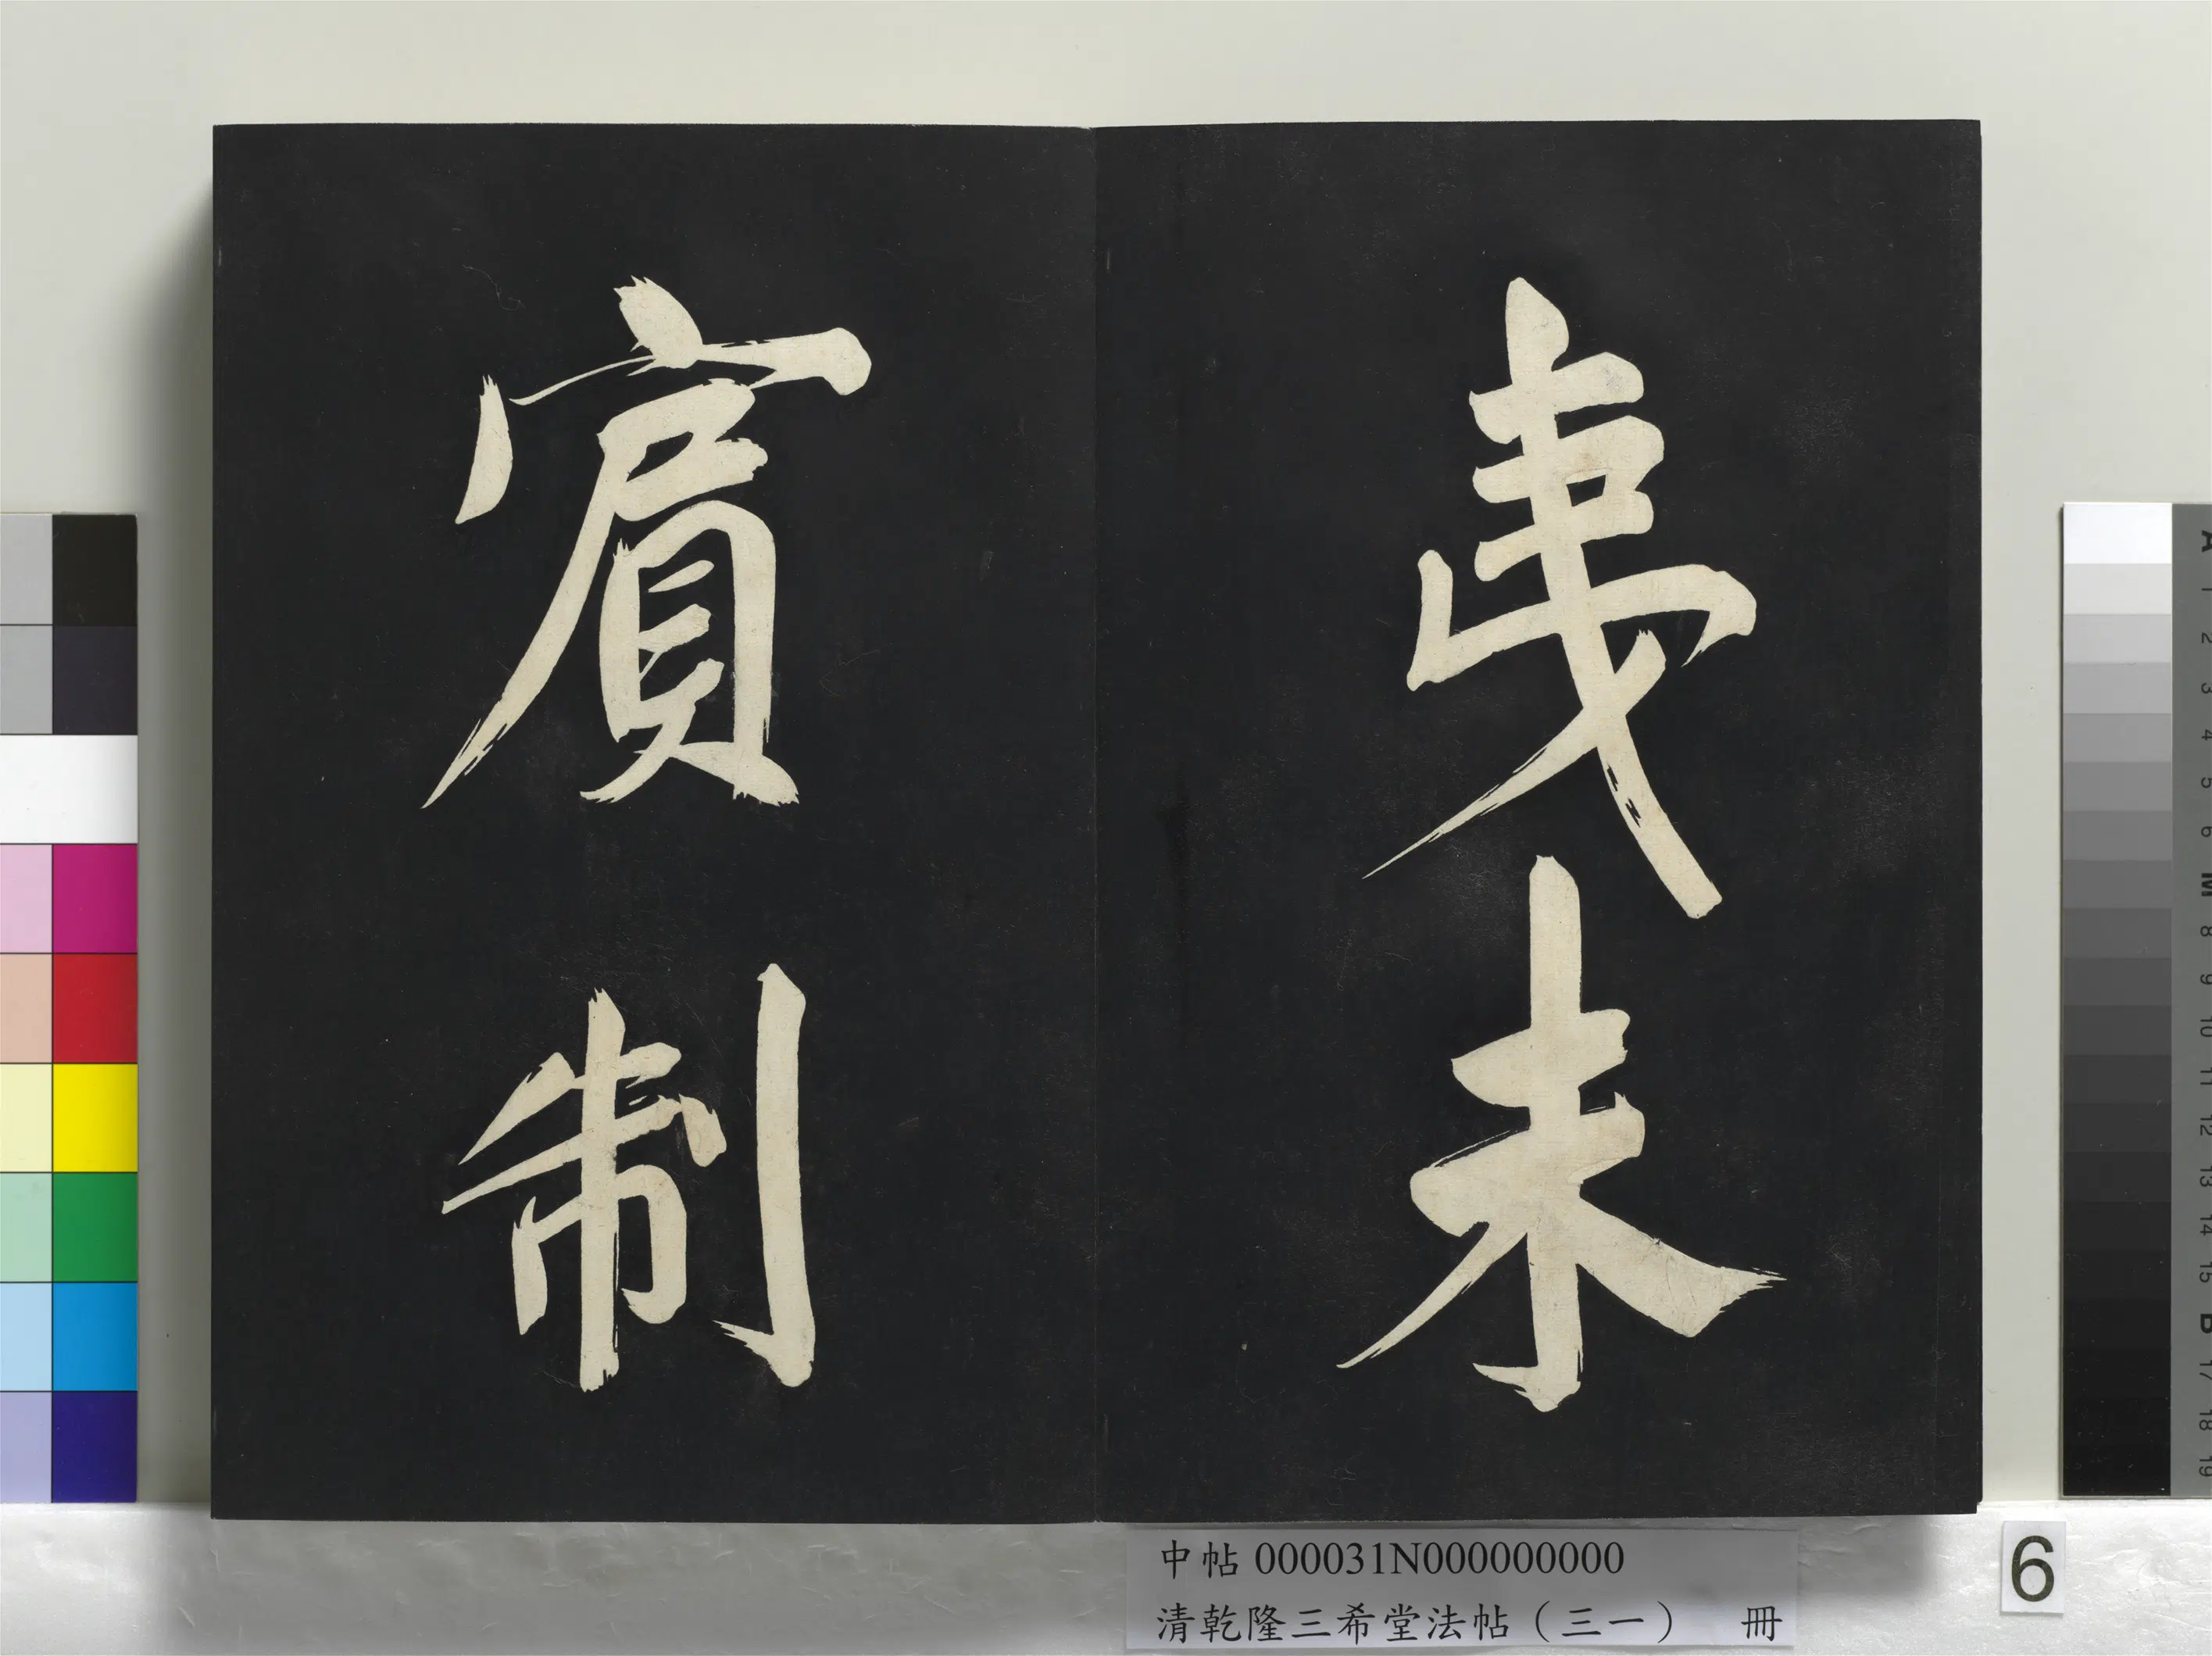 未
賓制
中帖 000031N000000000
清乾隆三希堂法帖（三一） 冊
6
A 1 2 3 4 5 6 M 8 9 10 11 12 13 14 15 B 17 18 19